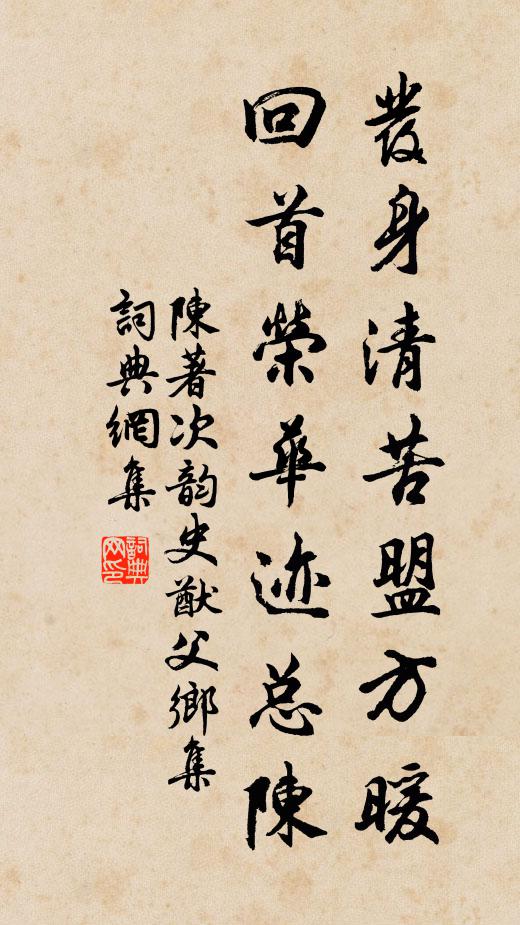 發身清苦盟方暖
回首榮華迹总陳
陳著次韵史猷父鄉集
詞典網集
詞典网印